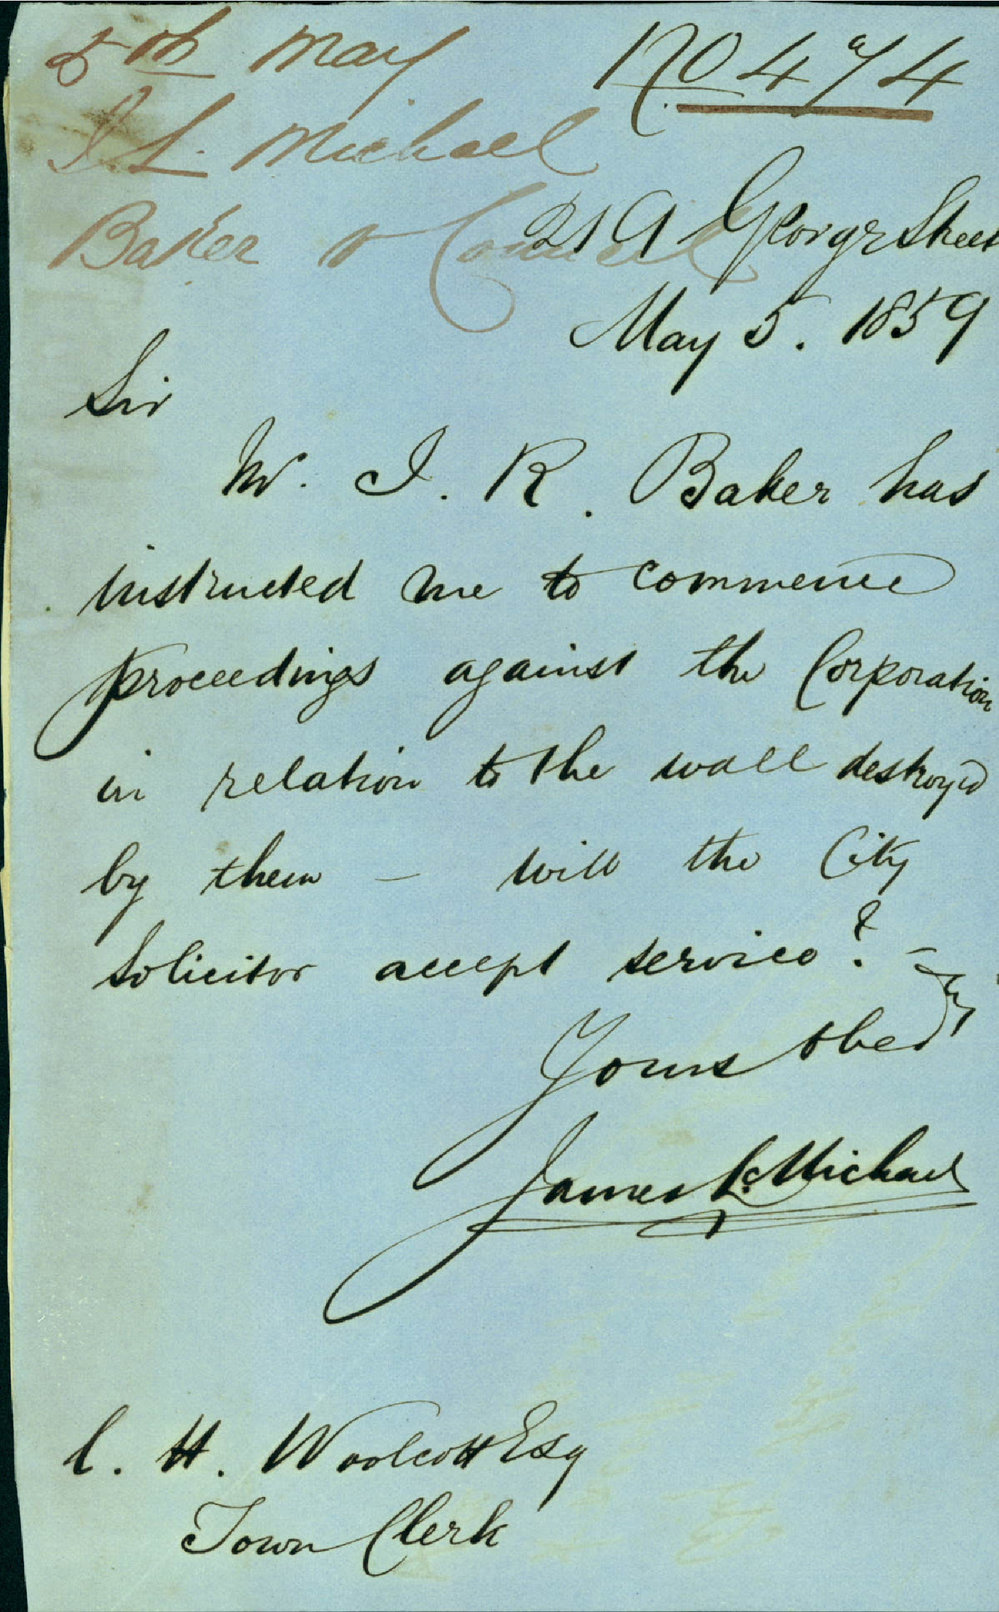 5th May
No 474
J L Michael
Baker v Council
21 A George Street
May 5. 1859
Sir
Mr. J. R. Baker has
instructed me to commence
proceedings against the Corporation
in relation to the wall destroyed
by them — will the City
Solicitor accept service? —
Yours obedtly
James L. Michael
C. H. Woolcott Esq
Town Clerk